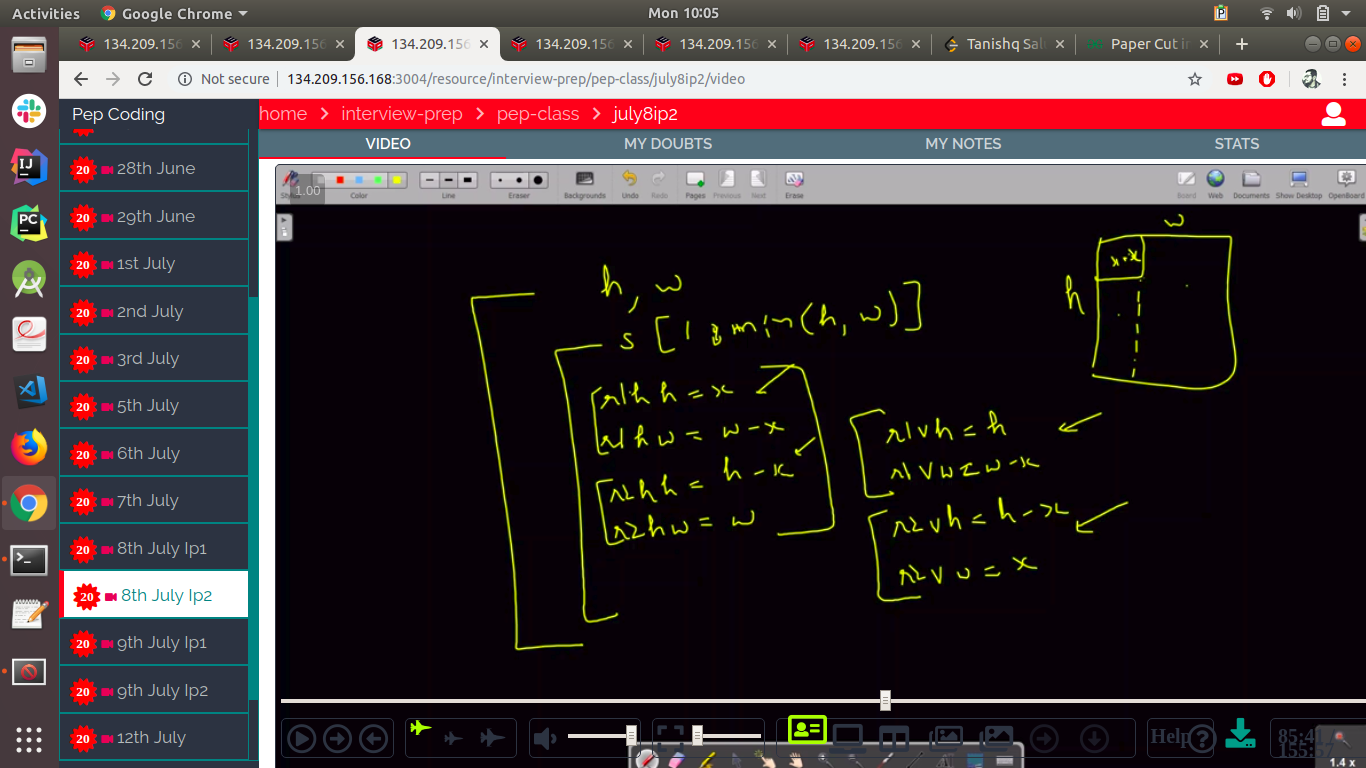 Activities
Google Chrome
Mon 10:05
134.209.156
134.209.156
134.209.156
134.209.156
134.209.156
134.209.156
Tanishq Sal
Paper Cut in
Not secure
134.209.156.168:3004/resource/interview-prep/pep-class/july8ip2/video
Pep Coding
home > interview-prep > pep-class > july8ip2
VIDEO
MY DOUBTS
MY NOTES
STATS
20 28th June
20 29th June
20 1st July
20 2nd July
20 3rd July
20 5th July
20 6th July
20 7th July
20 8th July Ip1
20 8th July Ip2
20 9th July Ip1
20 9th July Ip2
20 12th July
1.00
Stylus
Color
Line
Eraser
Backgrounds
Undo
Redo
Pages
Previous
Next
Erase
Board
Web
Documents
Show Desktop
OpenBoard
w
x·x
h
h, w
s [1 min(h, w)]
r1hh = x
r1hw = w-x
r2hh = h-x
r2hw = w
r1vh = h
r1vw = w-x
r2vh = h-x
r2vw = x
Help
1.4 x